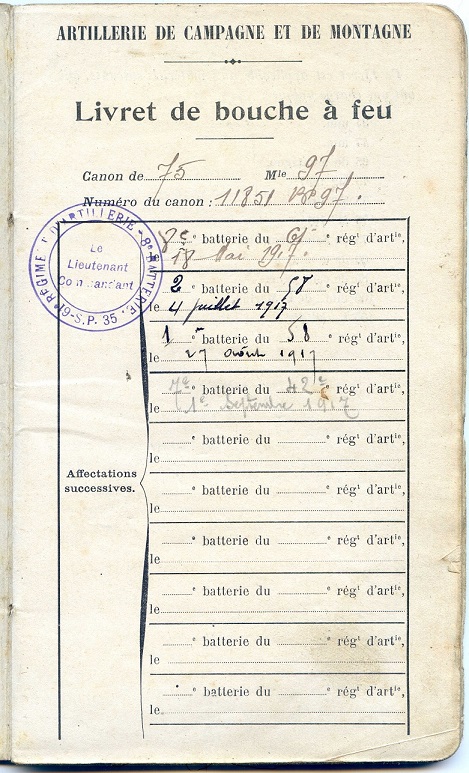 ARTILLERIE DE CAMPAGNE ET DE MONTAGNE
Livret de bouche à feu
Canon de 75 Mle 97
Numéro du canon : 11851
RÉGIMENT D'ARTILLERIE - 8e BATTERIE
Le
Lieutenant
Commandant
S.P. 35
8e batterie du 61 régt d'artie,
le 18 Mai 1917.
2 batterie du 58 régt d'artie,
le 4 juillet 1917
1 e batterie du 58 régt d'artie,
le 27 Août 1917
7e batterie du 42e régt d'artie,
le 1e Septembre 1917
e batterie du e régt d'artie,
le
Affectations
successives.
e batterie du e régt d'artie,
le
e batterie du e régt d'artie,
le
e batterie du e régt d'artie,
le
e batterie du e régt d'artie,
le
e batterie du e régt d'artie,
le